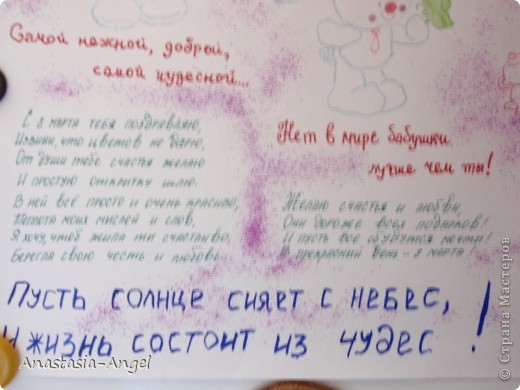 Самой нежной, доброй,
самой чудесной...
С 8 марта тебя поздравляю,
Извини, что цветов не дарю,
От души тебе счастья желаю
И простую открытку шлю.
В ней всё просто и очень красиво,
Теплота моих мыслей и слов,
Я хочу, чтоб жила ты счастливо,
Берегла свою честь и любовь.
Нет в мире бабушки
лучше чем ты!
Желаю счастья и любви,
Они дороже всех подарков!
И пусть все сбудутся мечты!
В прекрасный день - 8 марта!
Пусть солнце сияет с небес,
И жизнь состоит из чудес!
Anastasia-Angel
© Страна Мастеров